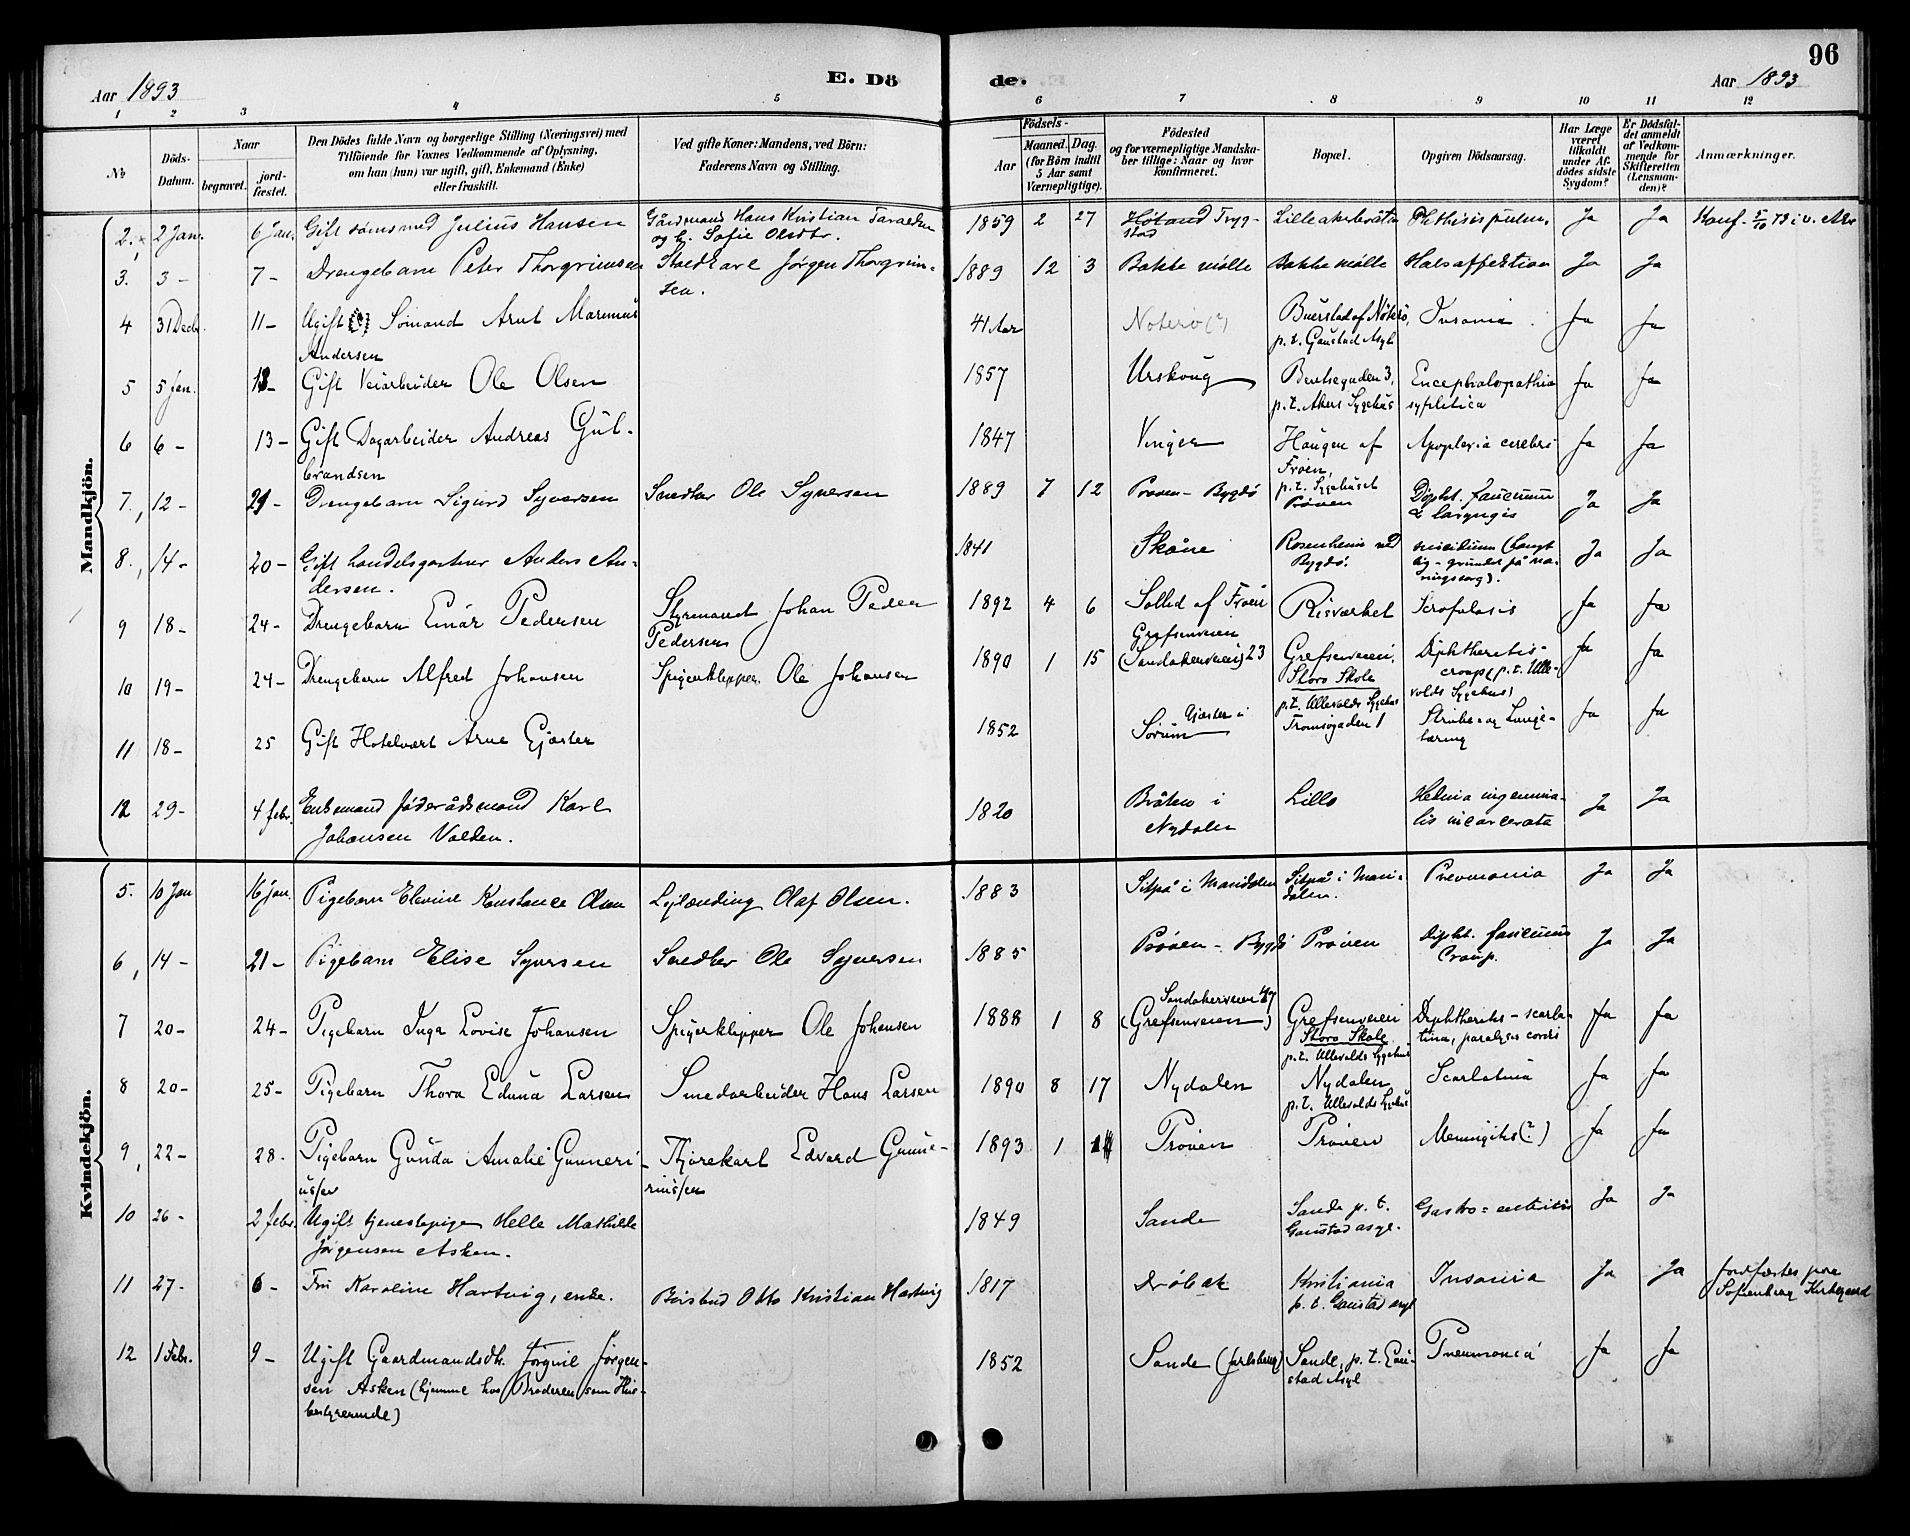 96
E. Dö
de.
Aar 1893
Aar 1893
1 2 3 4 5 6 7 8 9 10 11 12
№
Döds-
Datum.
Naar
begravet.
jord-
fæstet.
Den Dödes fulde Navn og borgerlige Stilling (Næringsvei) med
Tilföiende for Voxnes Vedkommende af Oplysning,
om han (hun) var ugift, gift, Enkemand (Enke)
eller fraskilt.
Ved gifte Koner: Mandens, ved Börn:
Faderens Navn og Stilling.
Födsels-
Aar
Maaned. Dag.
(for Börn indtil
5 Aar samt
Værnepligtige).
Födested
og for værnepligtige Mandska-
ber tillige: Naar og hvor
konfirmeret.
Bopæl.
Opgiven Dödsaarsag.
Har Læge
været
tilkaldt
under Af-
dödes sidste
Sygdom?
Er Dödsfal-
det anmeldt
af Vedkom-
mende for
Skifteretten
(Lensman-
den)?
Anmærkninger.
Mandkjön.
2. 2 Jan. 6 Jan. Gift Julius Hansen Gårdmand Hans Kristian 1859 2 27 Tryg- Phthisis pulm. Ja Ja Konf.
stad
og h. Sofie Olsdtr.
3. 3 - 7 - Drengebarn Peter Thorgrimsen Staldkarl Jørgen Thorgrim- 1889 12 3 Bakke mølle Bakke mølle Halsaffektion Ja Ja
sen.
4 31 Decbr. 11 - Ugift (?) Sømand Arnt Marinius 41 Aar Noterø (?) Buerstad af Nøterø, Insania. Ja Ja
Andersen p. t. Gaustad Asyl
5 5 Jan. 13 - Gift Veiarbeider Ole Olsen 1857 Urskoug Bentsegaden 3, Encephalopathia Ja Ja
p. t. Akers Sygehus syfiletica
6 6 - 13 - Gift Dagarbeider Andreas Gul- 1847 Vinger Haugen af Apoplexia cerebri Ja Ja
brandsen Frøen,
p. t. Sygehuset
7. 12 - 21 - Drengebarn Sigurd Syversen Snedker Ole Syversen 1889 7 12 Prøven - Bygdø Prøven Dipht. faucium Ja Ja
& laryngis
8. 14 - 20 - Gift handelsgartner Anders An- 1841 Skåne Rosenheim ved suicidium Ja Ja
dersen. Bygdø.
9 18 - 24 - Drengebarn Einar Pedersen Styrmand Johan Peder 1892 4 6 Solled af Frøen Risværket Scrofulosis Ja Ja
Pedersen
Grefsenveien
10 19 - 24 - Drengebarn Alfred Johansen Spigerklipper Ole Johansen 1890 1 15 (Sandakerveien) 23 Grefsenveien, Diphtheritis- Ja Ja
Storo Skole croup (p. t. Ulle-
p. t. Ullevolds Sygehus volds Sygehus)
11 18 - 25 Gift Hotelvært Arne Gjæster 1852 Gjæster i Sørum Tromsøgaden 1 Strube- og Lunge- Ja Ja
12 29 - 4 febr. Enkemand føderådsmand Karl 1820 Bråten i Lillo Hernia inguina- Ja Ja
Johansen Volden. Nydalen lis incarcerata
Kvindekjön.
5. 10 Jan 16 Jan. Pigebarn Elevine Konstance Olsen Olaf Olsen. 1883 Sitpå i Maridalen Sitpå i Mari- Pneumonia Ja Ja
dalen.
6 14 - 21 - Pigebarn Elise Syversen Snedker Ole Syversen 1885 Prøven - Bygdø Prøven Dipht. faucium Ja Ja
Croup.
7 20 - 24 - Pigebarn Inga Lovise Johansen Spigerklipper Ole Johansen 1888 1 8 Sandakerveien 47 (Grefsenveien) Grefsenveien Diphtheritis - scarla- Ja Ja
Storo Skole tina, paralysis cordis
p. t. Ullevolds Sygehus
8 20 - 25 - Pigebarn Thora Eduna Larsen Smedarbeider Hans Larsen 1890 8 17 Nydalen Nydalen Scarlatina Ja Ja
p. t. Ullevolds Sygehus
9 22 - 28. Pigebarn Gunda Amalie Gunneri- Kjørekarl Edvard Gunne- 1893 1 Prøven Prøven Meningitis (?) Ja Ja
ussen riussen
10 26 - 2 febr. Ugift tjenestepige Helle Mathilde 1849 Sande Sande p. t. Gastro-enteritis Ja Ja
Jørgensen Asken. Gaustad asyl.
11 27 - 6 - Fru Karoline Hartvig, enke. Otto Kristian Hartvig 1817 Drøbak Kristiania Insania Ja Ja Jordfæstes paa
p. t. Gaustad asyl Sofienberg Kirkegaard
12 1 Febr. 9 - Ugift Gaardmandsdtr. Jørgine Jørgen- 1852 Sande (Jarlsberg) Sande, p. t. Gau- Pneumonia Ja Ja
sen Asken (hjemme hos Broderen som Hus- stad Asyl
bestyrerinde)